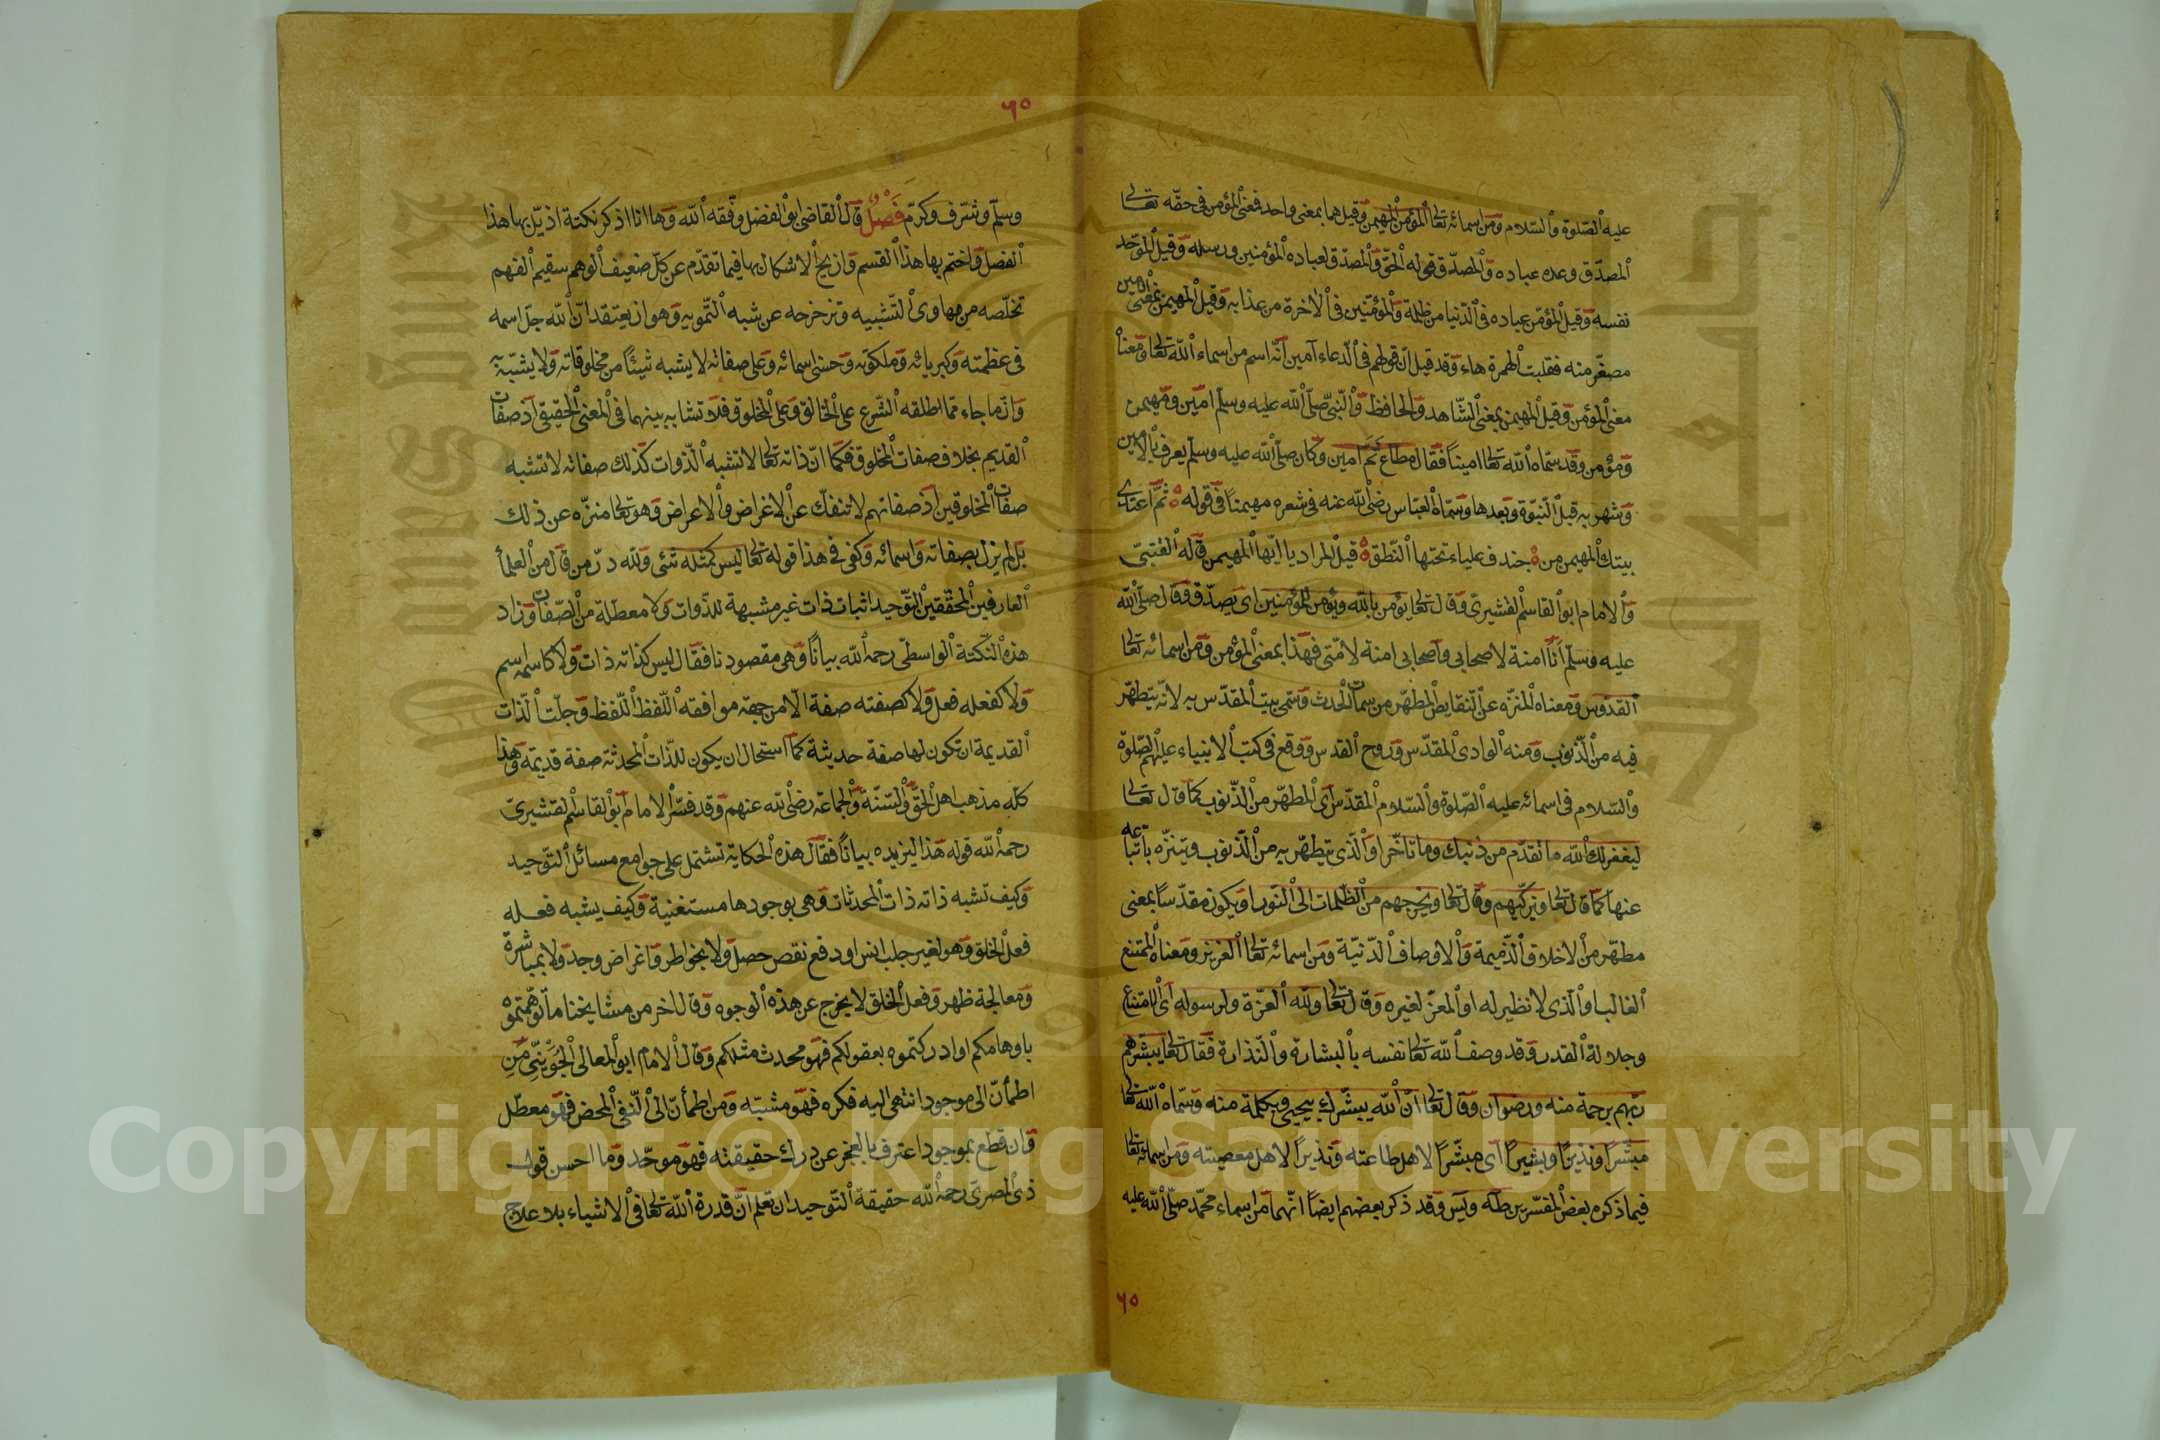 عليه الصلوة والسلام ومن اسمائه تعالى المؤمن المهيمن وقيل هما بمعنى واحد فمعنى المؤمن في حقه تعالى
المصدق وعده عباده والمصدق قوله الحق والمصدق لعباده المؤمنين ورسله وقيل الموحد
نفسه وقيل المؤمن عباده في الدنيا من ظلمه والمؤمنين في الاخرة من عذابه وقيل المهيمن بمعنى الامين
مصغر منه فقلبت الهمزة هاء وقد قيل ان قولهم في الدعاء آمين انه اسم من اسماء الله تعالى ومعناه
معنى المؤمن وقيل المهيمن بمعنى الشاهد والحافظ والنبي صلى الله عليه وسلم امين ومهيمن
ومؤمن وقد سماه الله تعالى امينا فقال مطاع ثم امين وكان صلى الله عليه وسلم يعرف بالامين
وشهر به قبل النبوة وبعدها وسماه العباس رضى الله عنه في شعره مهيمنا في قوله ثم اغتدى
بيتك المهيمن من خندف علياء تحتها النطق قيل المراد يا ايها المهيمن قاله القتبي
والامام ابو القاسم القشيري وقال تعالى يؤمن بالله ويؤمن للمؤمنين اى يصدق وقال صلى الله
عليه وسلم أنا امنة لاصحابي وأصحابي امنة لامتى فهذا بمعنى المؤمن ومن اسمائه تعالى
القدوس ومعناه المنزه عن النقايص المطهر من سمات الحدث وسمى بيت المقدس به لانه يتطهر
فيه من الذنوب ومنه الوادى المقدس وروح القدس ووقع في كتب الانبياء عليهم الصلوة
والسلام في اسمائه عليه الصلوة والسلام المقدس أى المطهر من الذنوب كما قال تعالى
ليغفر لك الله ما تقدم من ذنبك وما تأخر او الذى يتطهر به من الذنوب ويتنزه باتباعه
عنها كما قال تعالى ويزكيهم وقال تعالى ويخرجهم من الظلمات الى النور او يكون مقدسا بمعنى
مطهر من الاخلاق الذميمة والاوصاف الدنية ومن اسمائه تعالى العزيز ومعناه الممتنع
الغالب او الذى لا نظير له او المعز لغيره وقال تعالى ولله العزة ولرسوله أى الامتناع
وجلالة القدر وقد وصف الله تعالى نفسه بالبشارة والنذارة فقال تعالى يبشرهم
ربهم برحمة منه ورضوان وقال تعالى ان الله يبشرك بيحيى وبكلمة منه وسماه الله تعالى
مبشرا ونذيرا وبشيرا أى مبشرا لاهل طاعته ونذيرا لاهل معصيته ومن اسمائه تعالى
فيما ذكره بعض المفسرين طه ويس وقد ذكر بعضهم ايضا انهما من اسماء محمد صلى الله عليه
٦٠
٦٠
وسلم وشرف وكرم فصل قال القاضى ابو الفضل وفقه الله وها انا اذكر نكتة اذيل بها هذا
الفصل واختم بها هذا القسم وازيح الاشكال بها فيما تقدم عن كل ضعيف الوهم سقيم الفهم
تخلصه من مهاوى التشبيه وتزحزحه عن شبه التمويه وهو ان يعتقد ان الله جل اسمه
في عظمته وكبريائه وملكوته وحسنى اسمائه وعلى صفاته لا يشبه شيئا من مخلوقاته ولا يشبه به
وانما جاء مما اطلقه الشرع على الخالق وعلى المخلوق فلا تشابه بينهما في المعنى الحقيقى اذ صفات
القديم بخلاف صفات المخلوق فكما ان ذاته تعالى لا تشبه الذوات كذلك صفاته لا تشبه
صفات المخلوقين اذ صفاتهم لا تنفك عن الاغراض والاعراض وهو تعالى منزه عن ذلك
بل لم يزل بصفاته واسمائه وكفى في هذا قوله تعالى ليس كمثله شئى ولله در من قال من العلماء
العارفين المحققين التوحيد اثبات ذات غير مشبهة للذوات ولا معطلة من الصفات وزاد
هذه النكتة الواسطى رحمه الله بيانا وهى مقصودنا فقال ليس كذاته ذات ولا كاسمه اسم
ولا كفعله فعل ولا كصفته صفة الا من جهة موافقة اللفظ اللفظ وجلت الذات
القديمة ان تكون لها صفة حديثة كما استحال ان يكون للذات المحدثة صفة قديمة وهذا
كله مذهب اهل الحق والسنة والجماعة رضى الله عنهم وقد فسر الامام ابو القاسم القشيرى
رحمه الله قوله هذا ليزيده بيانا فقال هذه الحكاية تشتمل على جوامع مسائل التوحيد
وكيف تشبه ذاته ذات المحدثات وهى بوجودها مستغنية وكيف يشبه فعله
فعل الخلق وهو لغير جلب انس او دفع نقص حصل ولا بخواطر واغراض وجد ولا بمباشرة
ومعالجة ظهر وفعل الخلق لا يخرج عن هذه الوجوه وقال اخر من مشايخنا ما توهمتموه
باوهامكم او ادركتموه بعقولكم فهو محدث مثلكم وقال الامام ابو المعالى الجويني من
اطمأن الى موجود انتهى اليه فكره فهو مشبه ومن اطمأن الى النفى المحض فهو معطل
وان قطع بموجود اعترف بالعجز عن درك حقيقته فهو موحد وما احسن قول
ذى المصرى رحمه الله حقيقة التوحيد ان تعلم ان قدرة الله تعالى في الاشياء بلا علاج
Copyright © King Saud University